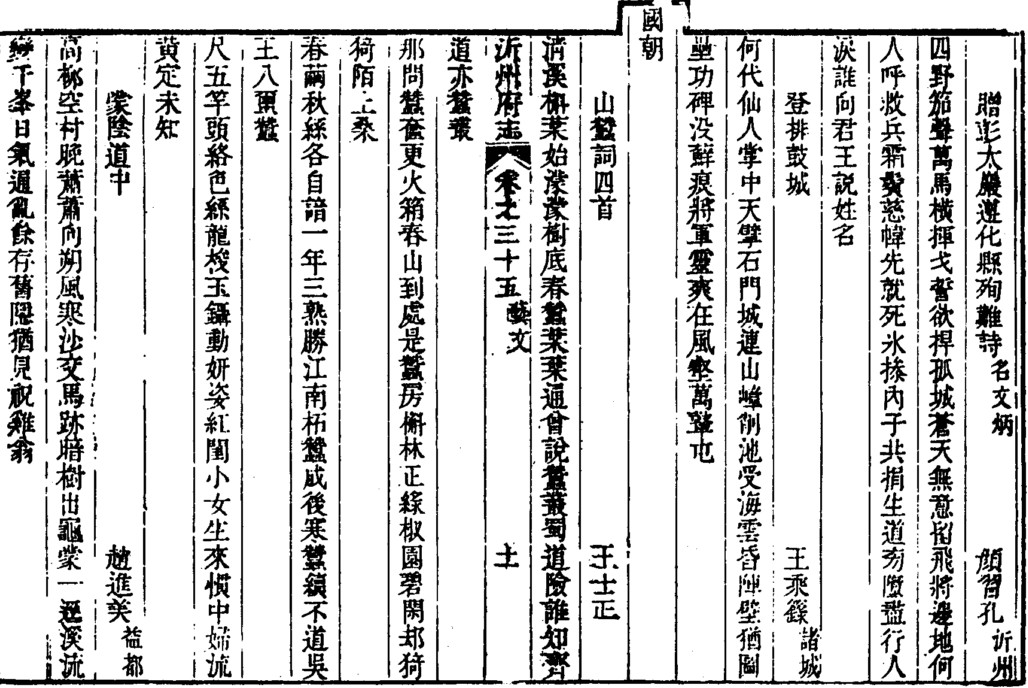 贈彭大巖遵化縣殉難詩 名文炳 顏習孔 沂州
四野笳聲萬馬橫揮戈誓欲捍孤城蒼天無意留飛將邊地何
人呼救兵霜鬢慈幃先就死氷操內子共捐生道旁墮盡行人
淚誰向君王說姓名
登排鼓城 王乘籙 諸城
何代仙人掌中天擘石門城連山嶂削池受海雲昏陣壁猶圖
壘功碑没蘚痕將軍靈爽在風壑萬聲屯
國朝
山蠶詞四首 王士正
清溪槲葉始濛濛樹底春蠶葉葉通曾說蠶叢蜀道險誰知齊
沂州府志 卷之三十五 藝文 土
道亦蠶叢
那問蠶奩更火箱春山到處是蠶房槲林正綠椒園碧閑却猗
猗陌上桑
春繭秋絲各自諳一年三熟勝江南柘蠶成後寒蠶續不道吳
王八繭蠶
尺五竿頭絡色絲龍梭玉鑷動妍姿紅閨小女坐來慣中婦流
黃定未知
蒙陰道中 趙進美 益都
高柳空村晚蕭蕭向朔風寒沙交馬跡暗樹出龜蒙一逕溪流
變千峯日氣通亂餘存舊隱猶見祝雞翁